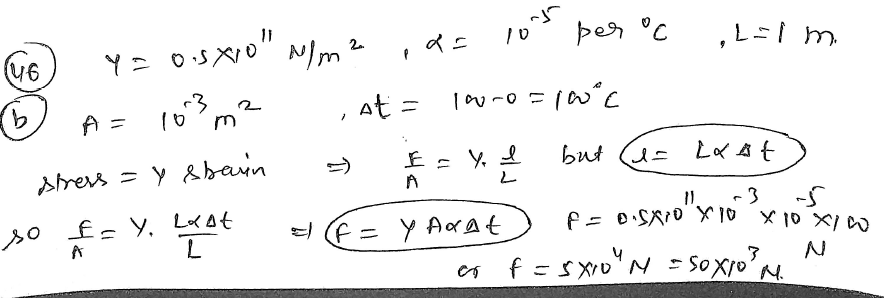 46 Y = 0.5×10¹¹ N/m², α = 10⁻⁵ per °C, L=1 m.
b A = 10⁻³ m², Δt = 100-0 = 100°C
stress = Y strain ⇒ F/A = Y. l/L but l = LαΔt
so F/A = Y. LαΔt/L ⇒ F = YAαΔt F = 0.5×10¹¹×10⁻³×10⁻⁵×100 N
or F = 5×10⁴ N = 50×10³ N.